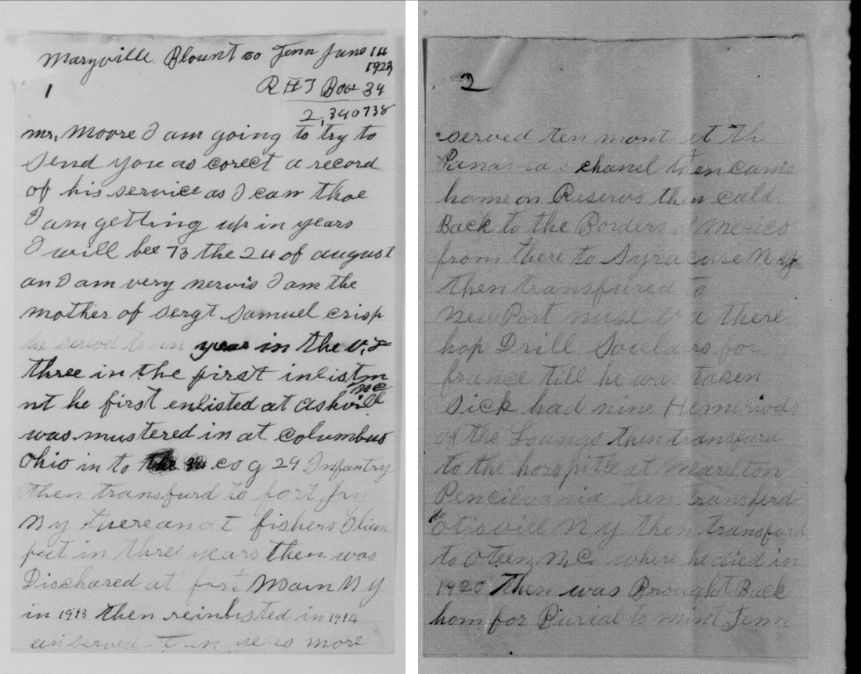 Maryville Blount co Tenn June 14
1923
1
R H 7 Box 34
2,390738
Mr. Moore I am going to try to
Send you as corect a record
of his service as I can thoe
I am getting up in years
I will bee 73 the 24 of august
an I am very nervis I am the
mother of sergt Samuel crisp
he servd year in the U.S
three in the first inlistm
nt he first enlisted at Ashvill
NC
was mustered in at Columbus
Ohio in to the co g 29 Infantry
then transfurd to fort Jay
N y there an at fishers Ilien
put in three years then was
Dischared at fort N y
in 1913 then reinlisted in 1914
an served years more
2
served ten mont at the
Panama chanel then came
home on Reserve then cald
Back to the Borders of Mexico
from there to Syracuse N y
then transfured to
New Port nuse va there
hop Drill Soulders for
france till he was taken
Sick had nine Hemeriods
of the Loungs then transfurd
to the horspitle at Marelton
Pencilvania then transferd
Otisvill N y then transford
to Oteen N.C. where he died in
1920 then was Brought Back
hom for Burial to mint Tenn